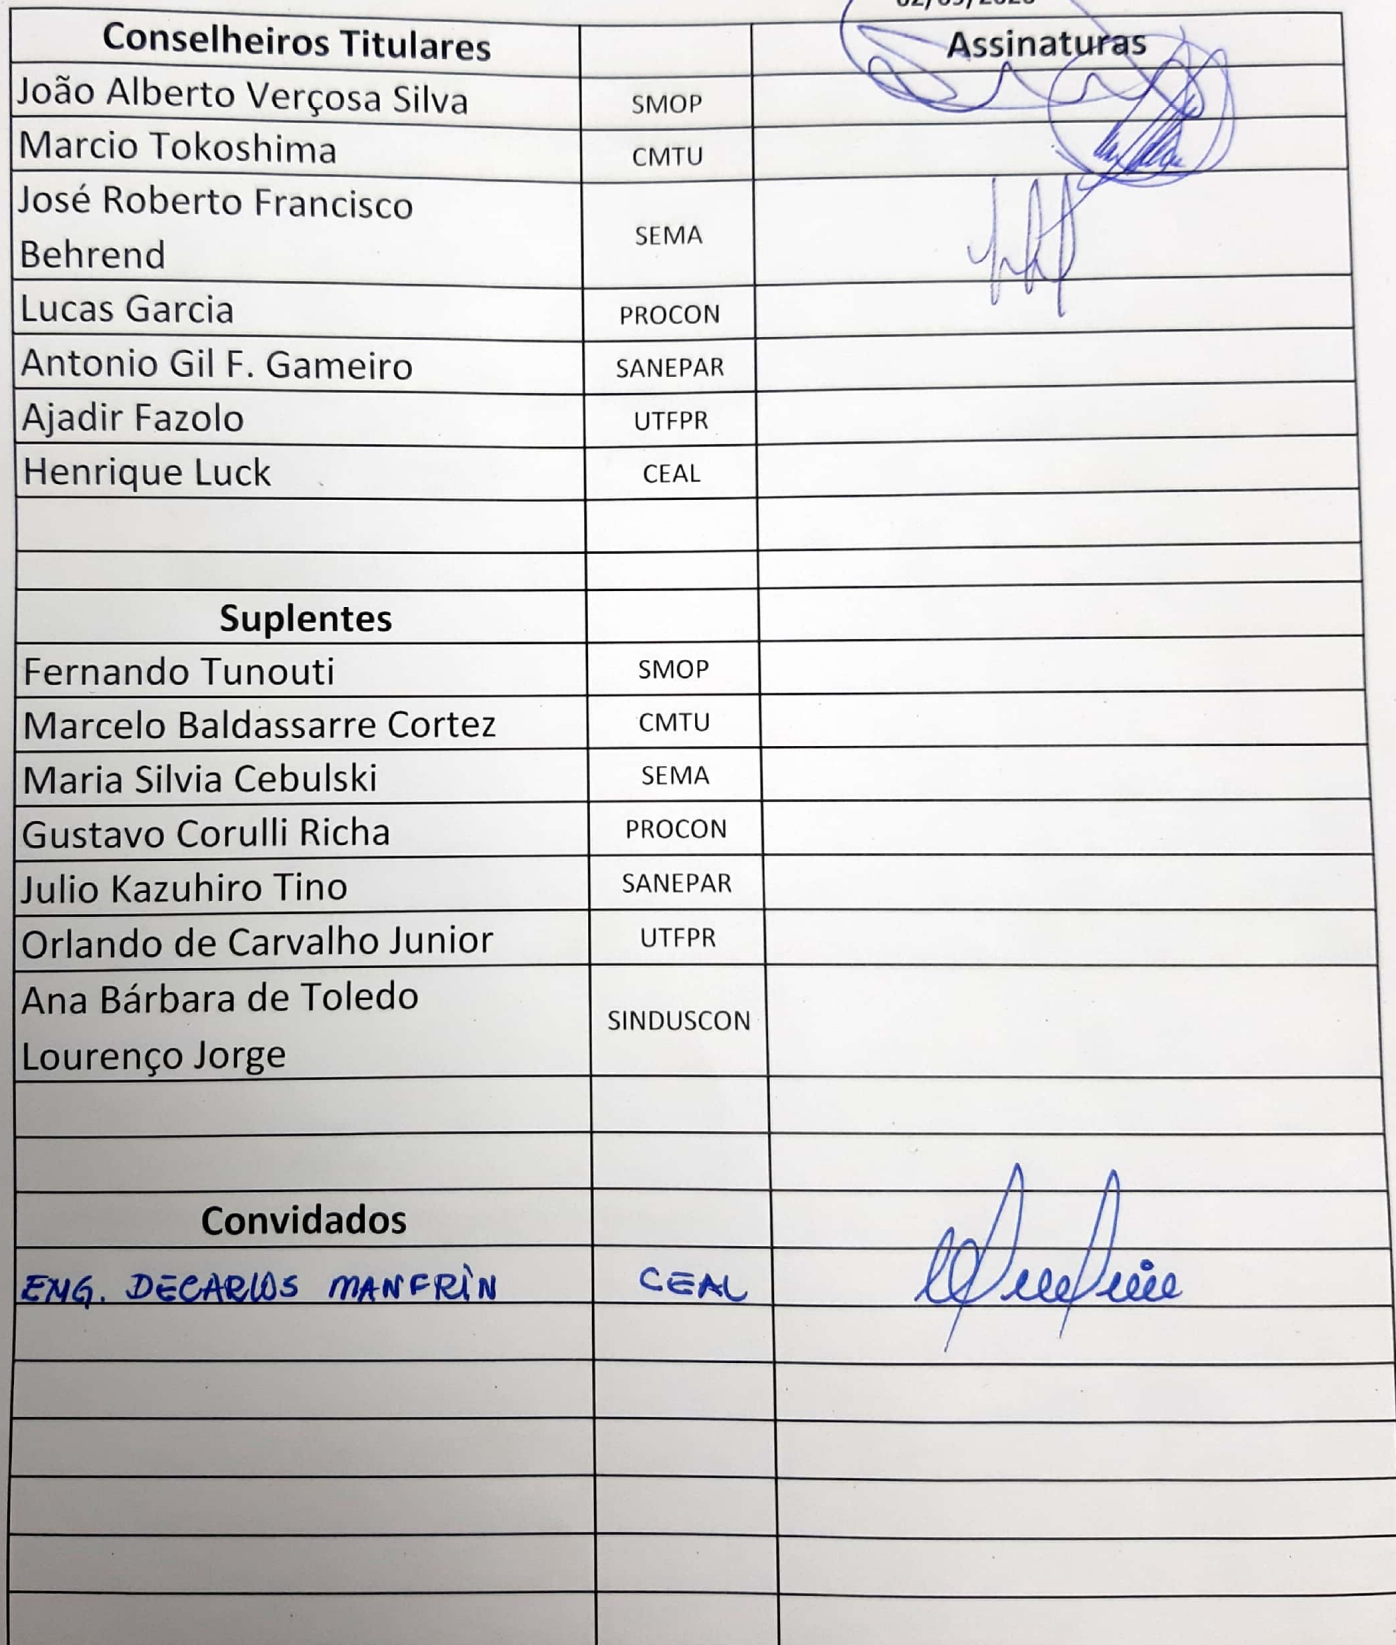 Conselheiros Titulares Assinaturas
João Alberto Verçosa Silva SMOP
Marcio Tokoshima CMTU
José Roberto Francisco
Behrend SEMA
Lucas Garcia PROCON
Antonio Gil F. Gameiro SANEPAR
Ajadir Fazolo UTFPR
Henrique Luck CEAL
Suplentes
Fernando Tunouti SMOP
Marcelo Baldassarre Cortez CMTU
Maria Silvia Cebulski SEMA
Gustavo Corulli Richa PROCON
Julio Kazuhiro Tino SANEPAR
Orlando de Carvalho Junior UTFPR
Ana Bárbara de Toledo
Lourenço Jorge SINDUSCON
Convidados
ENG. DECARLOS MANFRIN CEAL